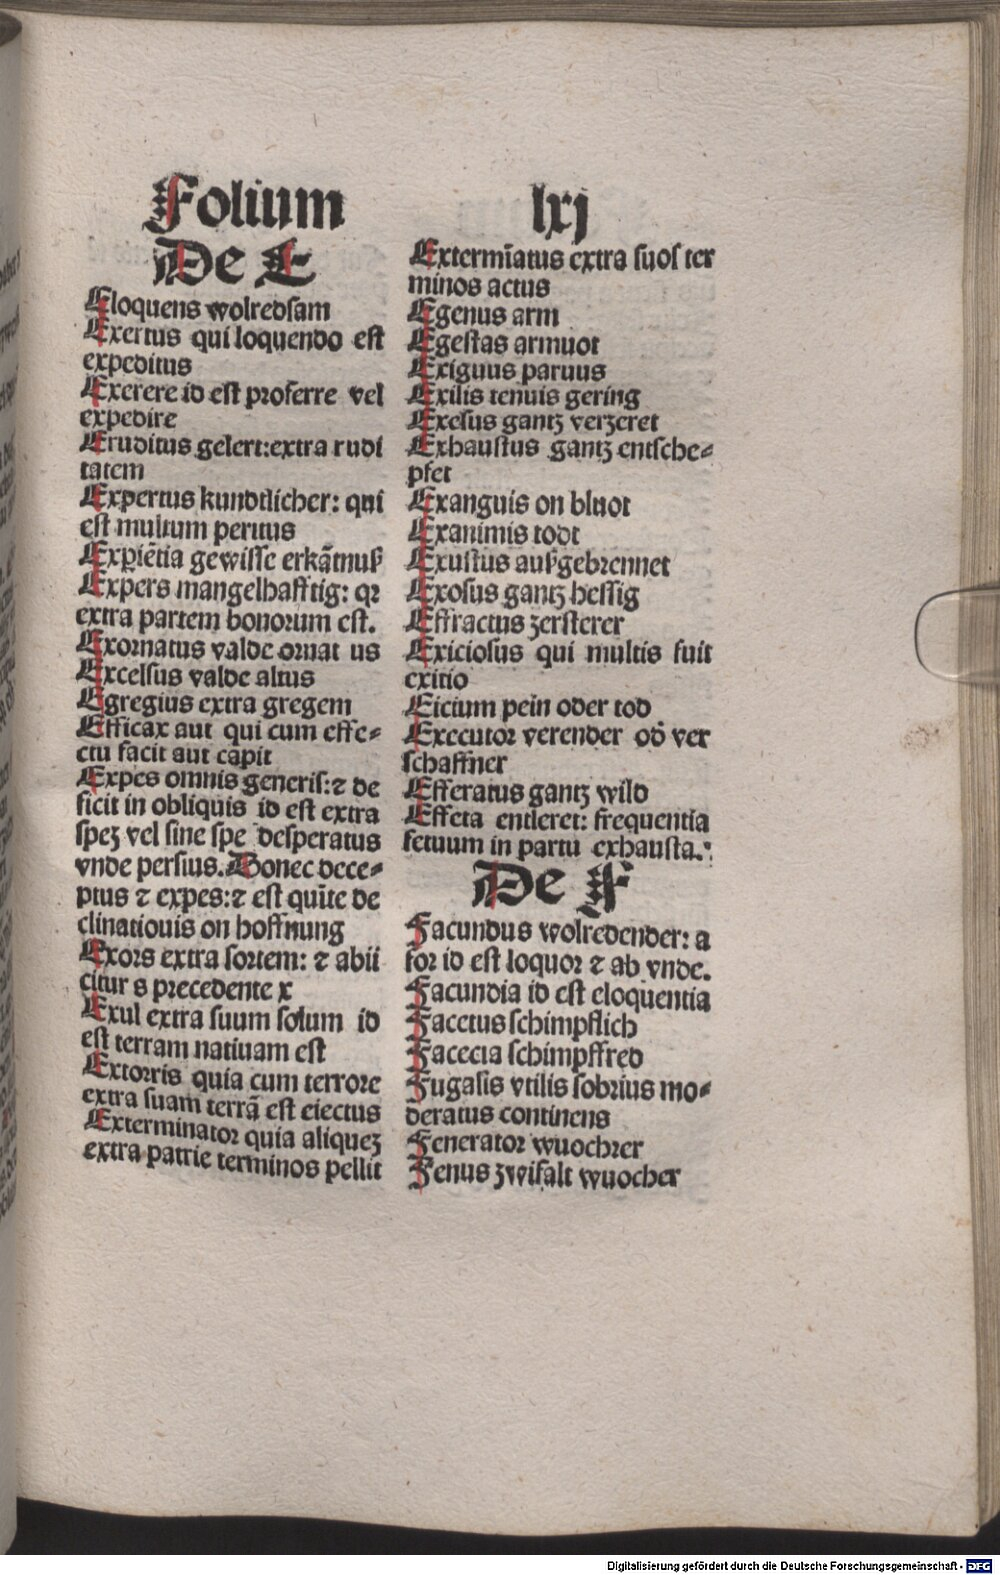 Folium lxj
De E
Eloquens wolredsam
Exertus qui loquendo est
expeditus
Exerere id est proferre vel
expedire
Eruditus gelert: extra rudi
tatem
Expertus kundtlicher: qui
est multum peritus
Exꝑiẽtia gewisse erkãtnuß
Expers mangelhafftig: qꝛ
extra partem bonorum est.
Exornatus valde ornat us
Excelsus valde altus
Egregius extra gregem
Efficax aut qui cum effe⸗
ctu facit aut capit
Expes omnis generis: ⁊ de
ficit in obliquis id est extra
speʒ vel sine spe desperatus
vnde persius. Donec dece⸗
ptus ⁊ expes: ⁊ est quĩte de
clinatiouis on hoffnung
Exors extra sortem: ⁊ abii
citur s precedente x
Exul extra suum solum id
est terram natiuam est
Extorris quia cum terrore
extra suam terrã est eiectus
Exterminator quia aliqueʒ
extra patrie terminos pellit
Extermĩatus extra suos ter
minos actus
Egenus arm
Egestas armuot
Exiguus paruus
Exilis tenuis gering
Exesus gantz verzeret
Exhaustus gantz entsche⸗
pfet
Exanguis on bluot
Exanimis todt
Exustus außgebrennet
Exosus gantz hessig
Effractus zersterer
Exiciosus qui multis fuit
exitio
Eicium pein oder tod
Executor verender od̕ ver
schaffner
Efferatus gantz wild
Effeta entleret: frequentia
fetuum in partu exhausta.
De F
Facundus wolredender: a
for id est loquor ⁊ ab vnde.
Facundia id est eloquentia
Facetus schimpflich
Facecia schimpffred
Fugasis vtilis sobrius mo⸗
deratus continens
Fenerator wuochrer
Fenus zwifalt wuocher
Digitalisierung gefördert durch die Deutsche Forschungsgemeinschaft - DFG